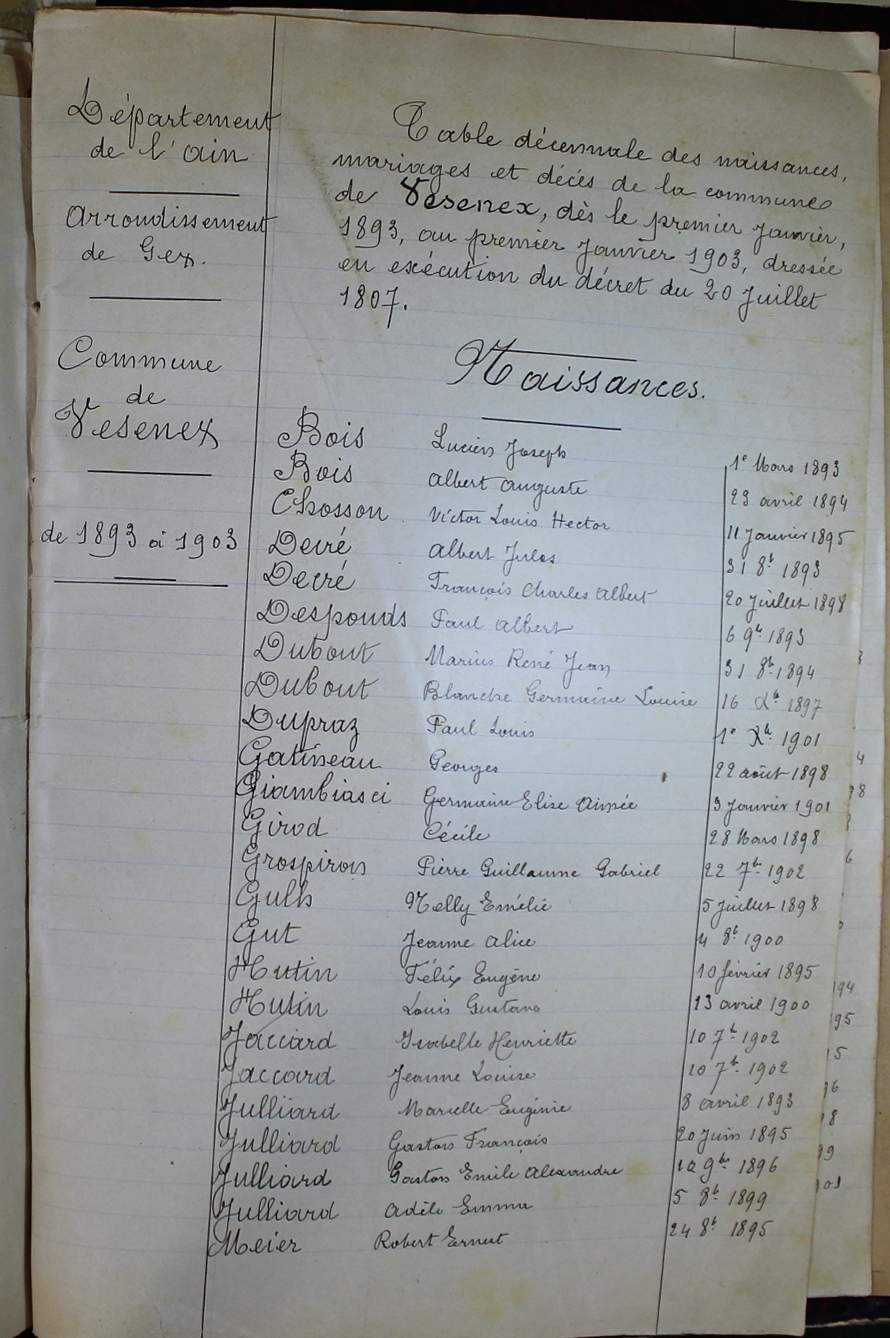 Département
de l'Ain
Arrondissement
de Gex.
Commune
de
Vesenex
de 1893 à 1903
Table décennale des naissances,
mariages et décès de la commune
de Vesenex, dès le premier Janvier,
1893, au premier Janvier 1903, dressée
en exécution du décret du 20 Juillet
1807.
Naissances.
Bois Lucien Joseph 1° Mars 1893
Bois Albert Auguste 23 avril 1894
Chosson Victor Louis Hector 11 Janvier 1895
Decré Albert Jules 31 8b. 1893
Decré François Charles Albert 20 Juillet 1898
Desponds Paul Albert 6 9b. 1893
Dubout Marius René Jean 31 8b. 1894
Dubout Blanche Germaine Louise 16 Xb. 1897
Dupraz Paul Louis 1° Xb. 1901
Gatineau Georges 22 août 1898
Giambiasci Germaine Elise Aimée 3 Janvier 1901
Girod Cécile 28 Mars 1898
Grospiron Pierre Guillaume Gabriel 22 7b. 1902
Nelly Emélie 5 Juillet 1898
Gut Jeanne Alice 4 8b. 1900
Hutin Félix Eugène 10 février 1895
Hutin Louis Gustave 13 avril 1900
Jaccard Isabelle Henriette 10 7b. 1902
Jaccard Jeanne Louise 10 7b. 1902
Julliard Marcelle Eugénie 8 avril 1893
Julliard Gaston François 20 Juin 1895
Julliard Gaston Emile Alexandre 9b. 1896
Julliard Adèle Emma 5 8b. 1899
Meier Robert Ernest 24 8b. 1895